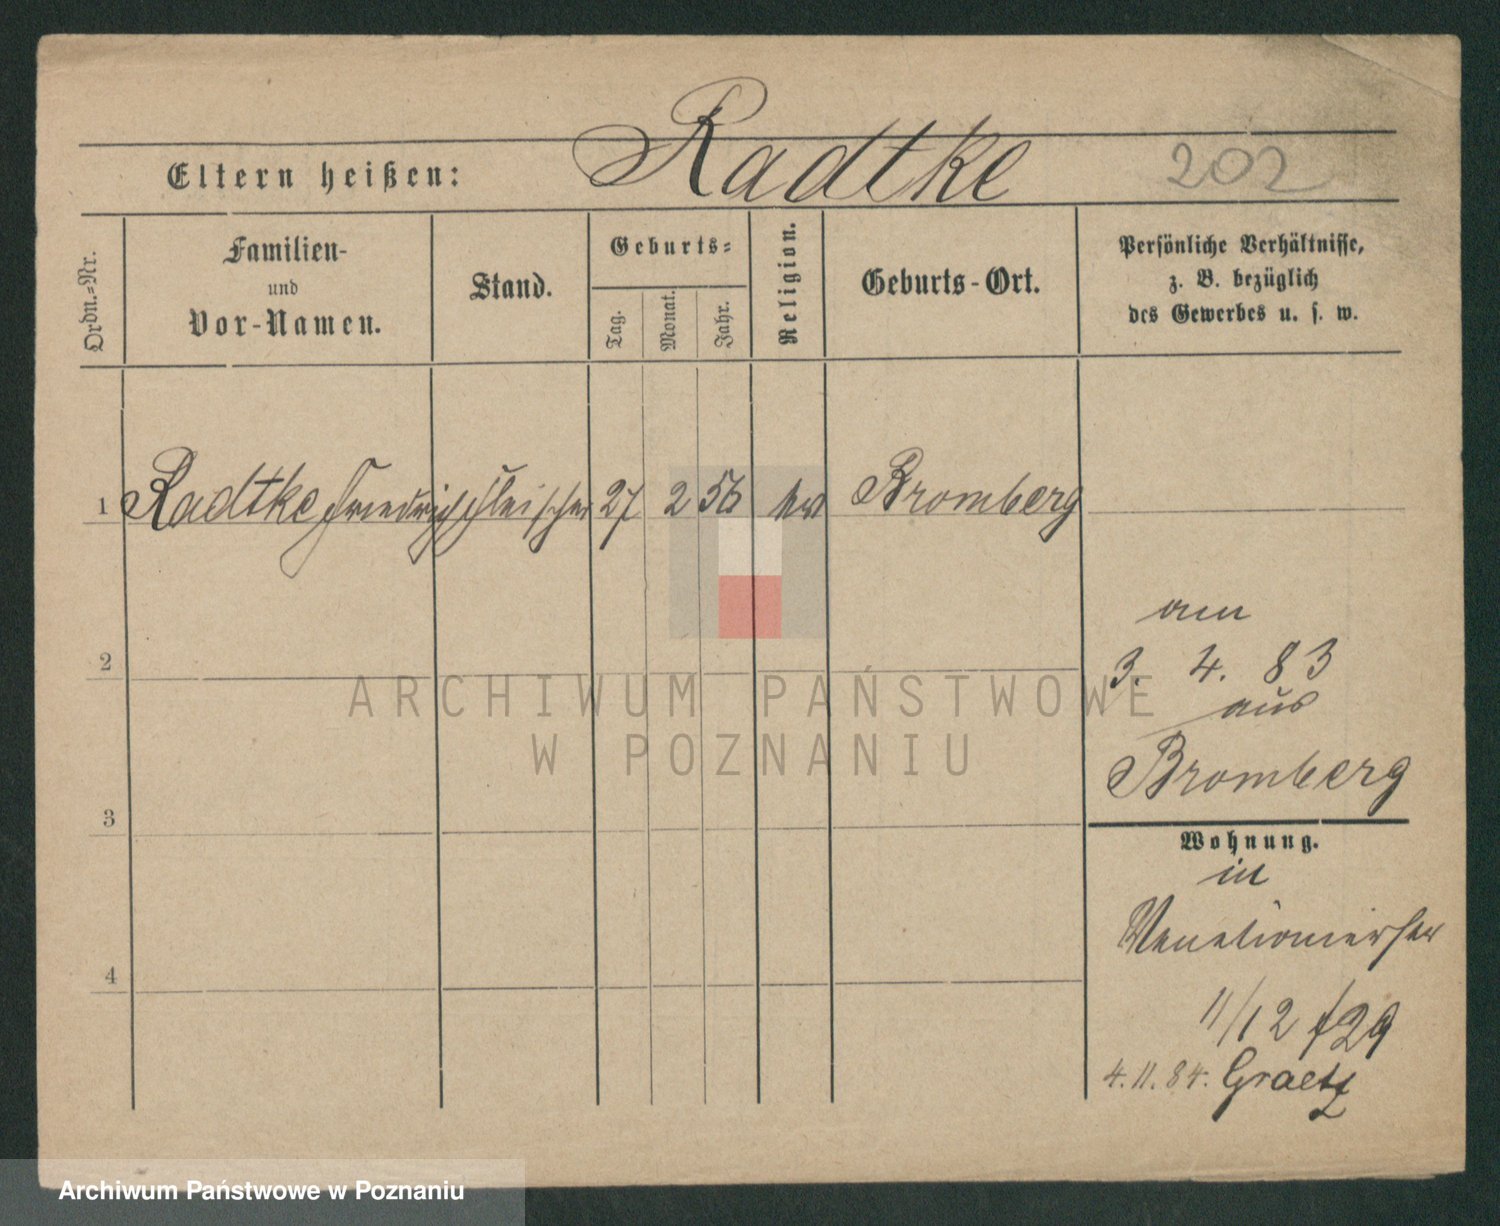 Radtke
202
Eltern heißen:
Ordn.-Nr.
Familien-
und
Vor-Namen.
Stand.
Geburts-
Tag.
Monat.
Jahr.
Religion.
Geburts-Ort.
Persönliche Verhältnisse,
z. B. bezüglich
des Gewerbes u. s. w.
1 Radtke Friedrich Fleischer 27 2 56 Bromberg
am
3. 4. 83
aus
Bromberg
2
3
4
Wohnung.
in
11/12 f29
4.11.84. Graetz
ARCHIWUM PAŃSTWOWE
W POZNANIU
Archiwum Państwowe w Poznaniu